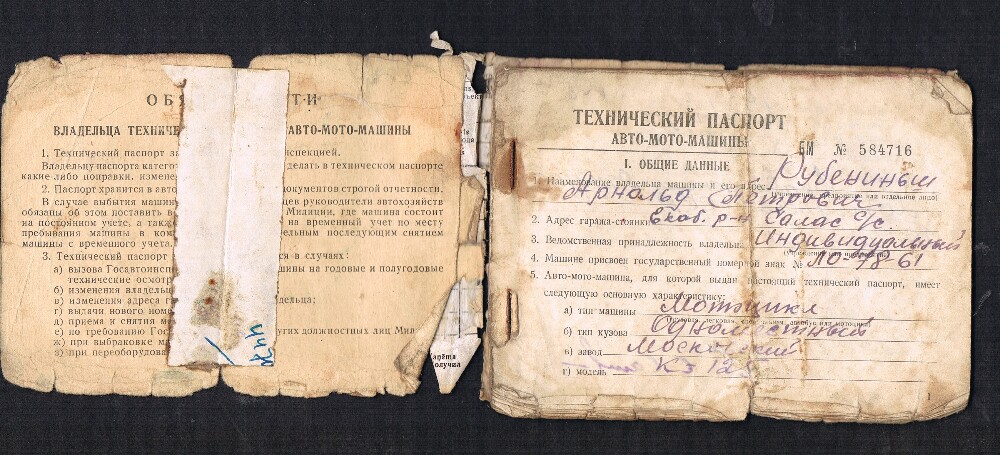 ОБЯ ТИ
ВЛАДЕЛЬЦА ТЕХНИЧЕ АВТО-МОТО-МАШИНЫ
1. Технический паспорт за инспекцией.
Владельцу паспорта катего делать в техническом паспорте
какие-либо поправки, измене
2. Паспорт хранится в авто документов строгой отчетности.
В случае выбытия машин цев руководители автохозяйств
обязаны об этом поставить в Милиции, где машина состоит
на постоянном учете, а такж на временный учет по месту
пребывания машины в ком ельным последующим снятием
машины с временного учета.
3. Технический паспорт ся в случаях:
а) вызова Госавтоинспе ины на годовые и полугодовые
технические осмотр
б) изменения владель
в) изменения адреса г дельца;
г) выдачи нового номе
д) приема и снятия м
е) по требованию Гос угих должностных лиц Мил
ж) при выбраковке м
з) при переоборудова
олучил
ТЕХНИЧЕСКИЙ ПАСПОРТ
АВТО-МОТО-МАШИНЫ
БМ № 584716
I. ОБЩИЕ ДАННЫЕ
1. Наименование владельца машины и его адрес Рубениныш
Арнольд Петрович
2. Адрес гаража-стоянки Екаб. р-н Салас с/с.
3. Ведомственная принадлежность владельца Индивидуальный
4. Машине присвоен государственный номерной знак № 61
5. Авто-мото-машина, для которой выдан настоящий технический паспорт, имеет
следующую основную характеристику:
а) тип машины Мотоцикл
б) тип кузова Одноместный
в) завод Московский
г) модель К
1